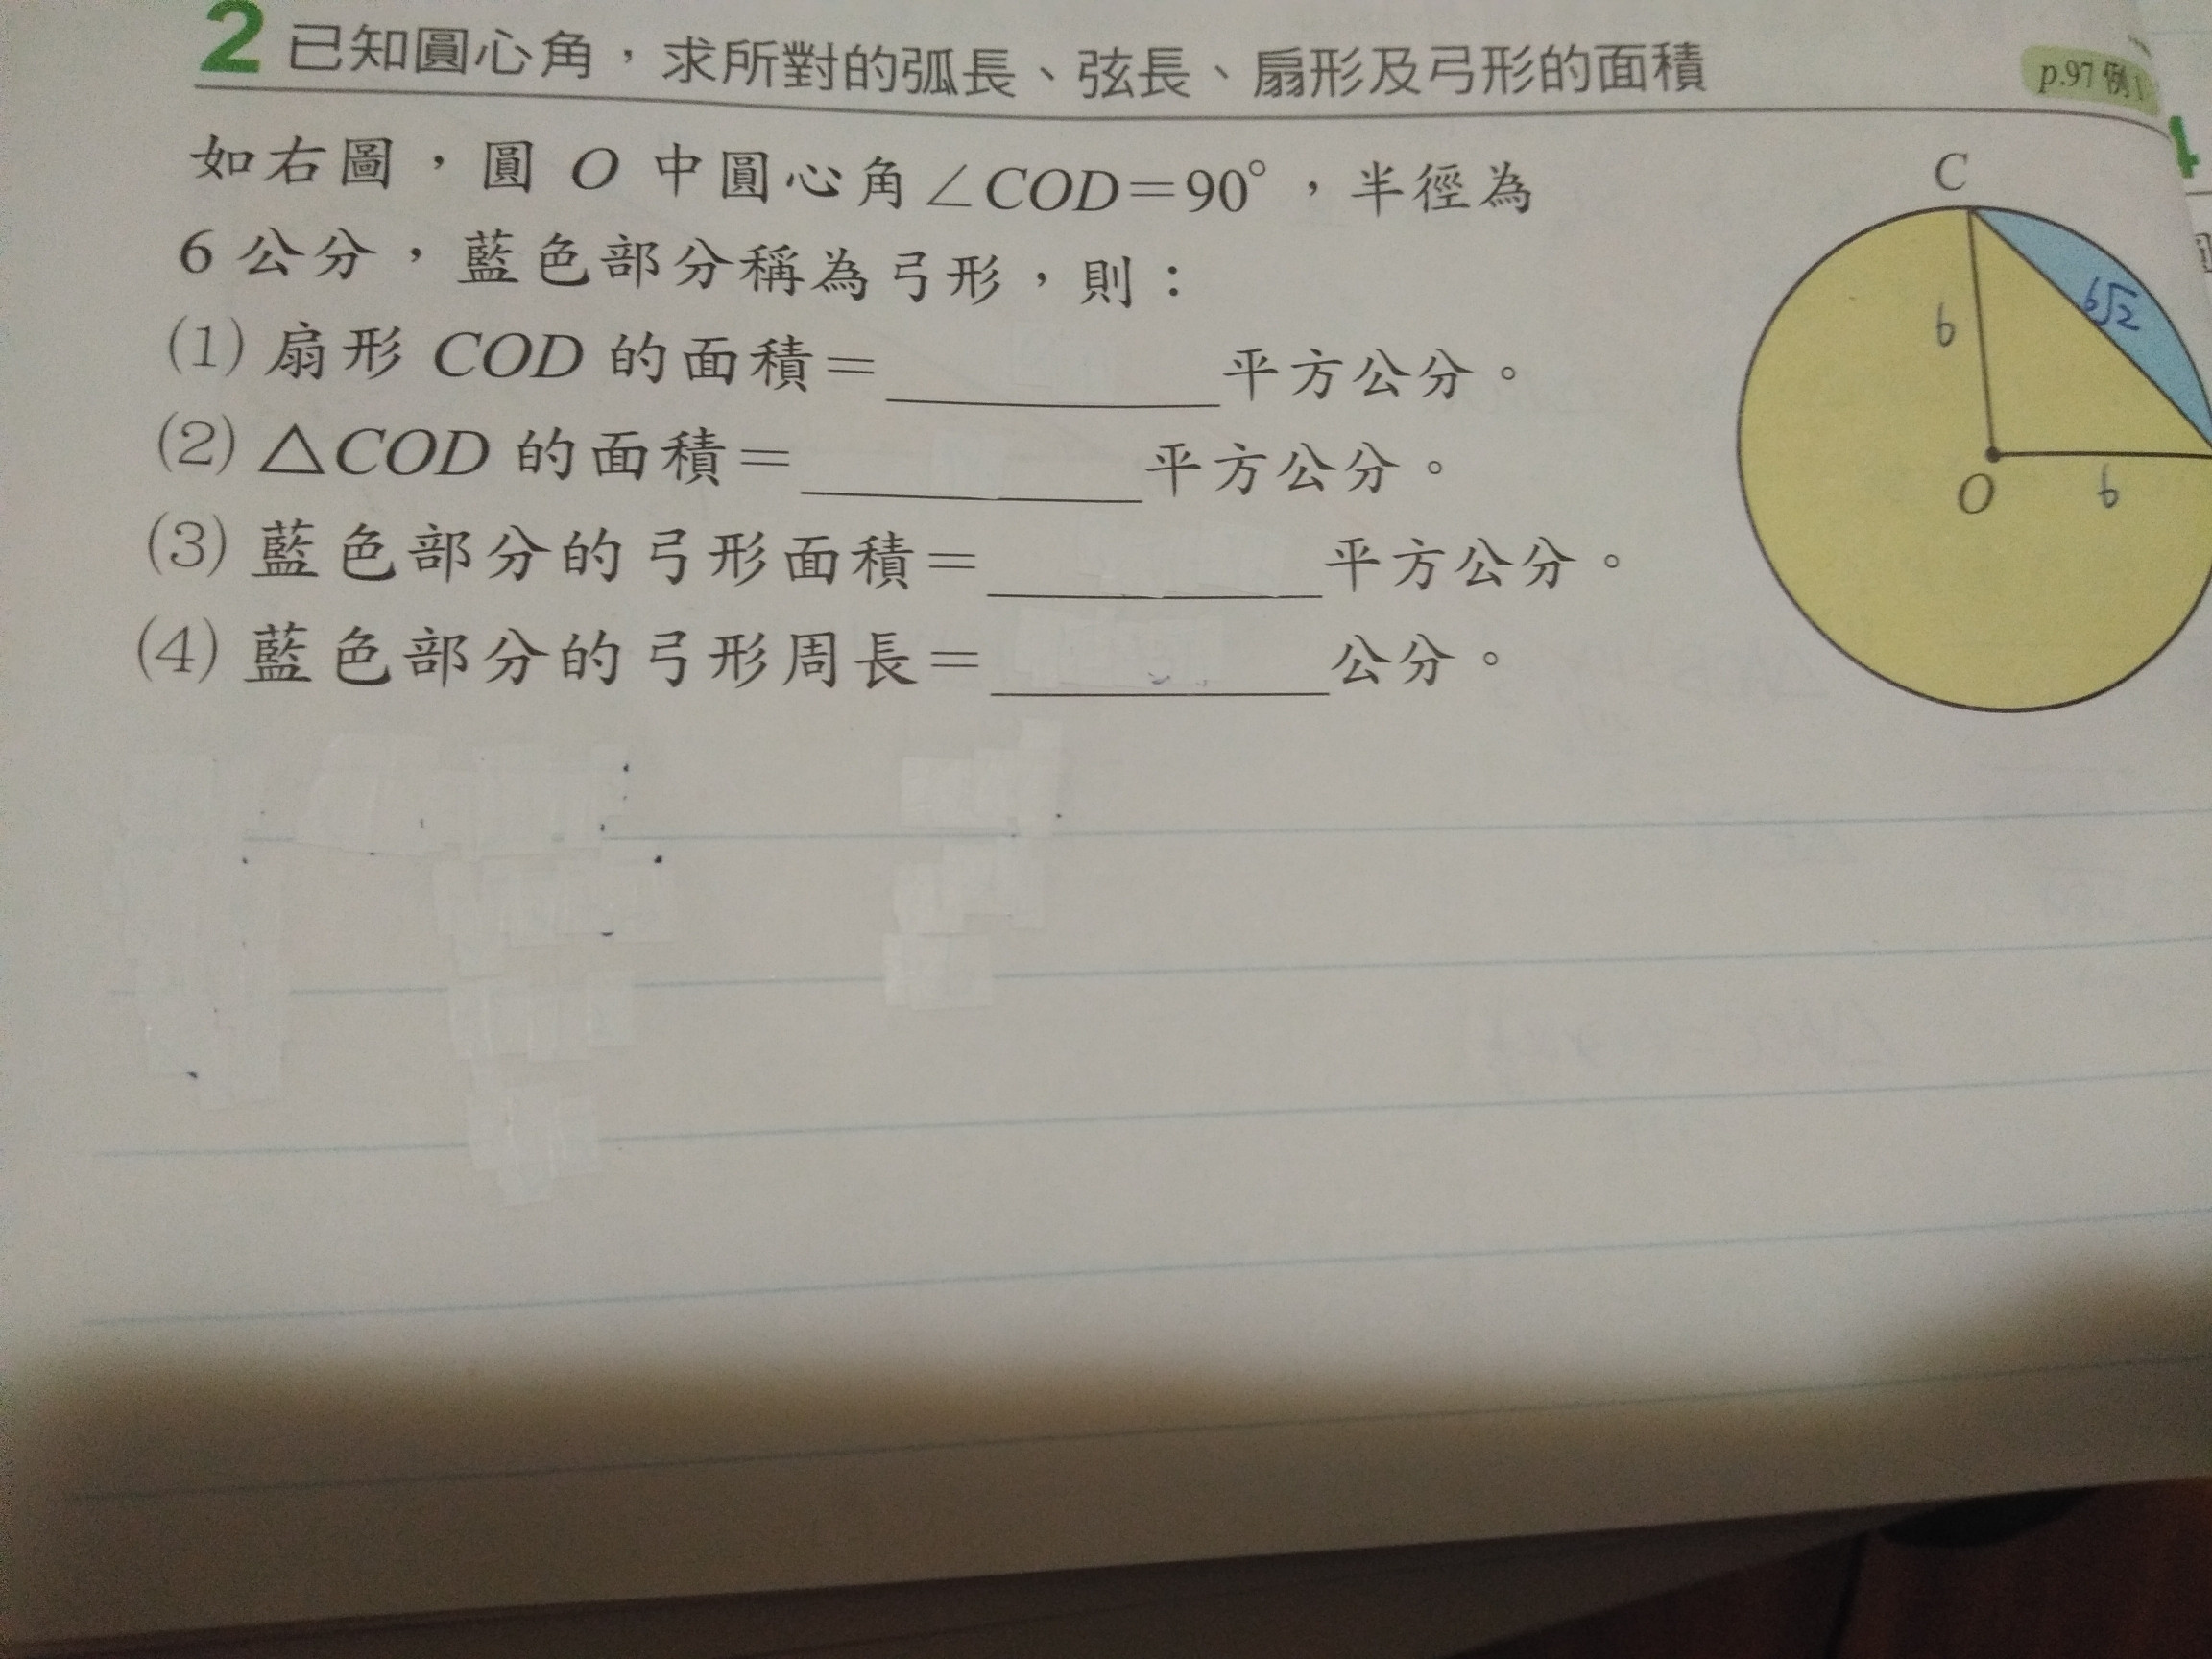 2 已知圓心角，求所對的弧長、弦長、扇形及弓形的面積
p.97 例1
如右圖，圓 O 中圓心角∠COD=90°，半徑為
6 公分，藍色部分稱為弓形，則：
(1) 扇形 COD 的面積=＿＿＿＿平方公分。
(2) △COD 的面積=＿＿＿＿平方公分。
(3) 藍色部分的弓形面積=＿＿＿＿平方公分。
(4) 藍色部分的弓形周長=＿＿＿＿公分。
C
6√2
6
O
6
4